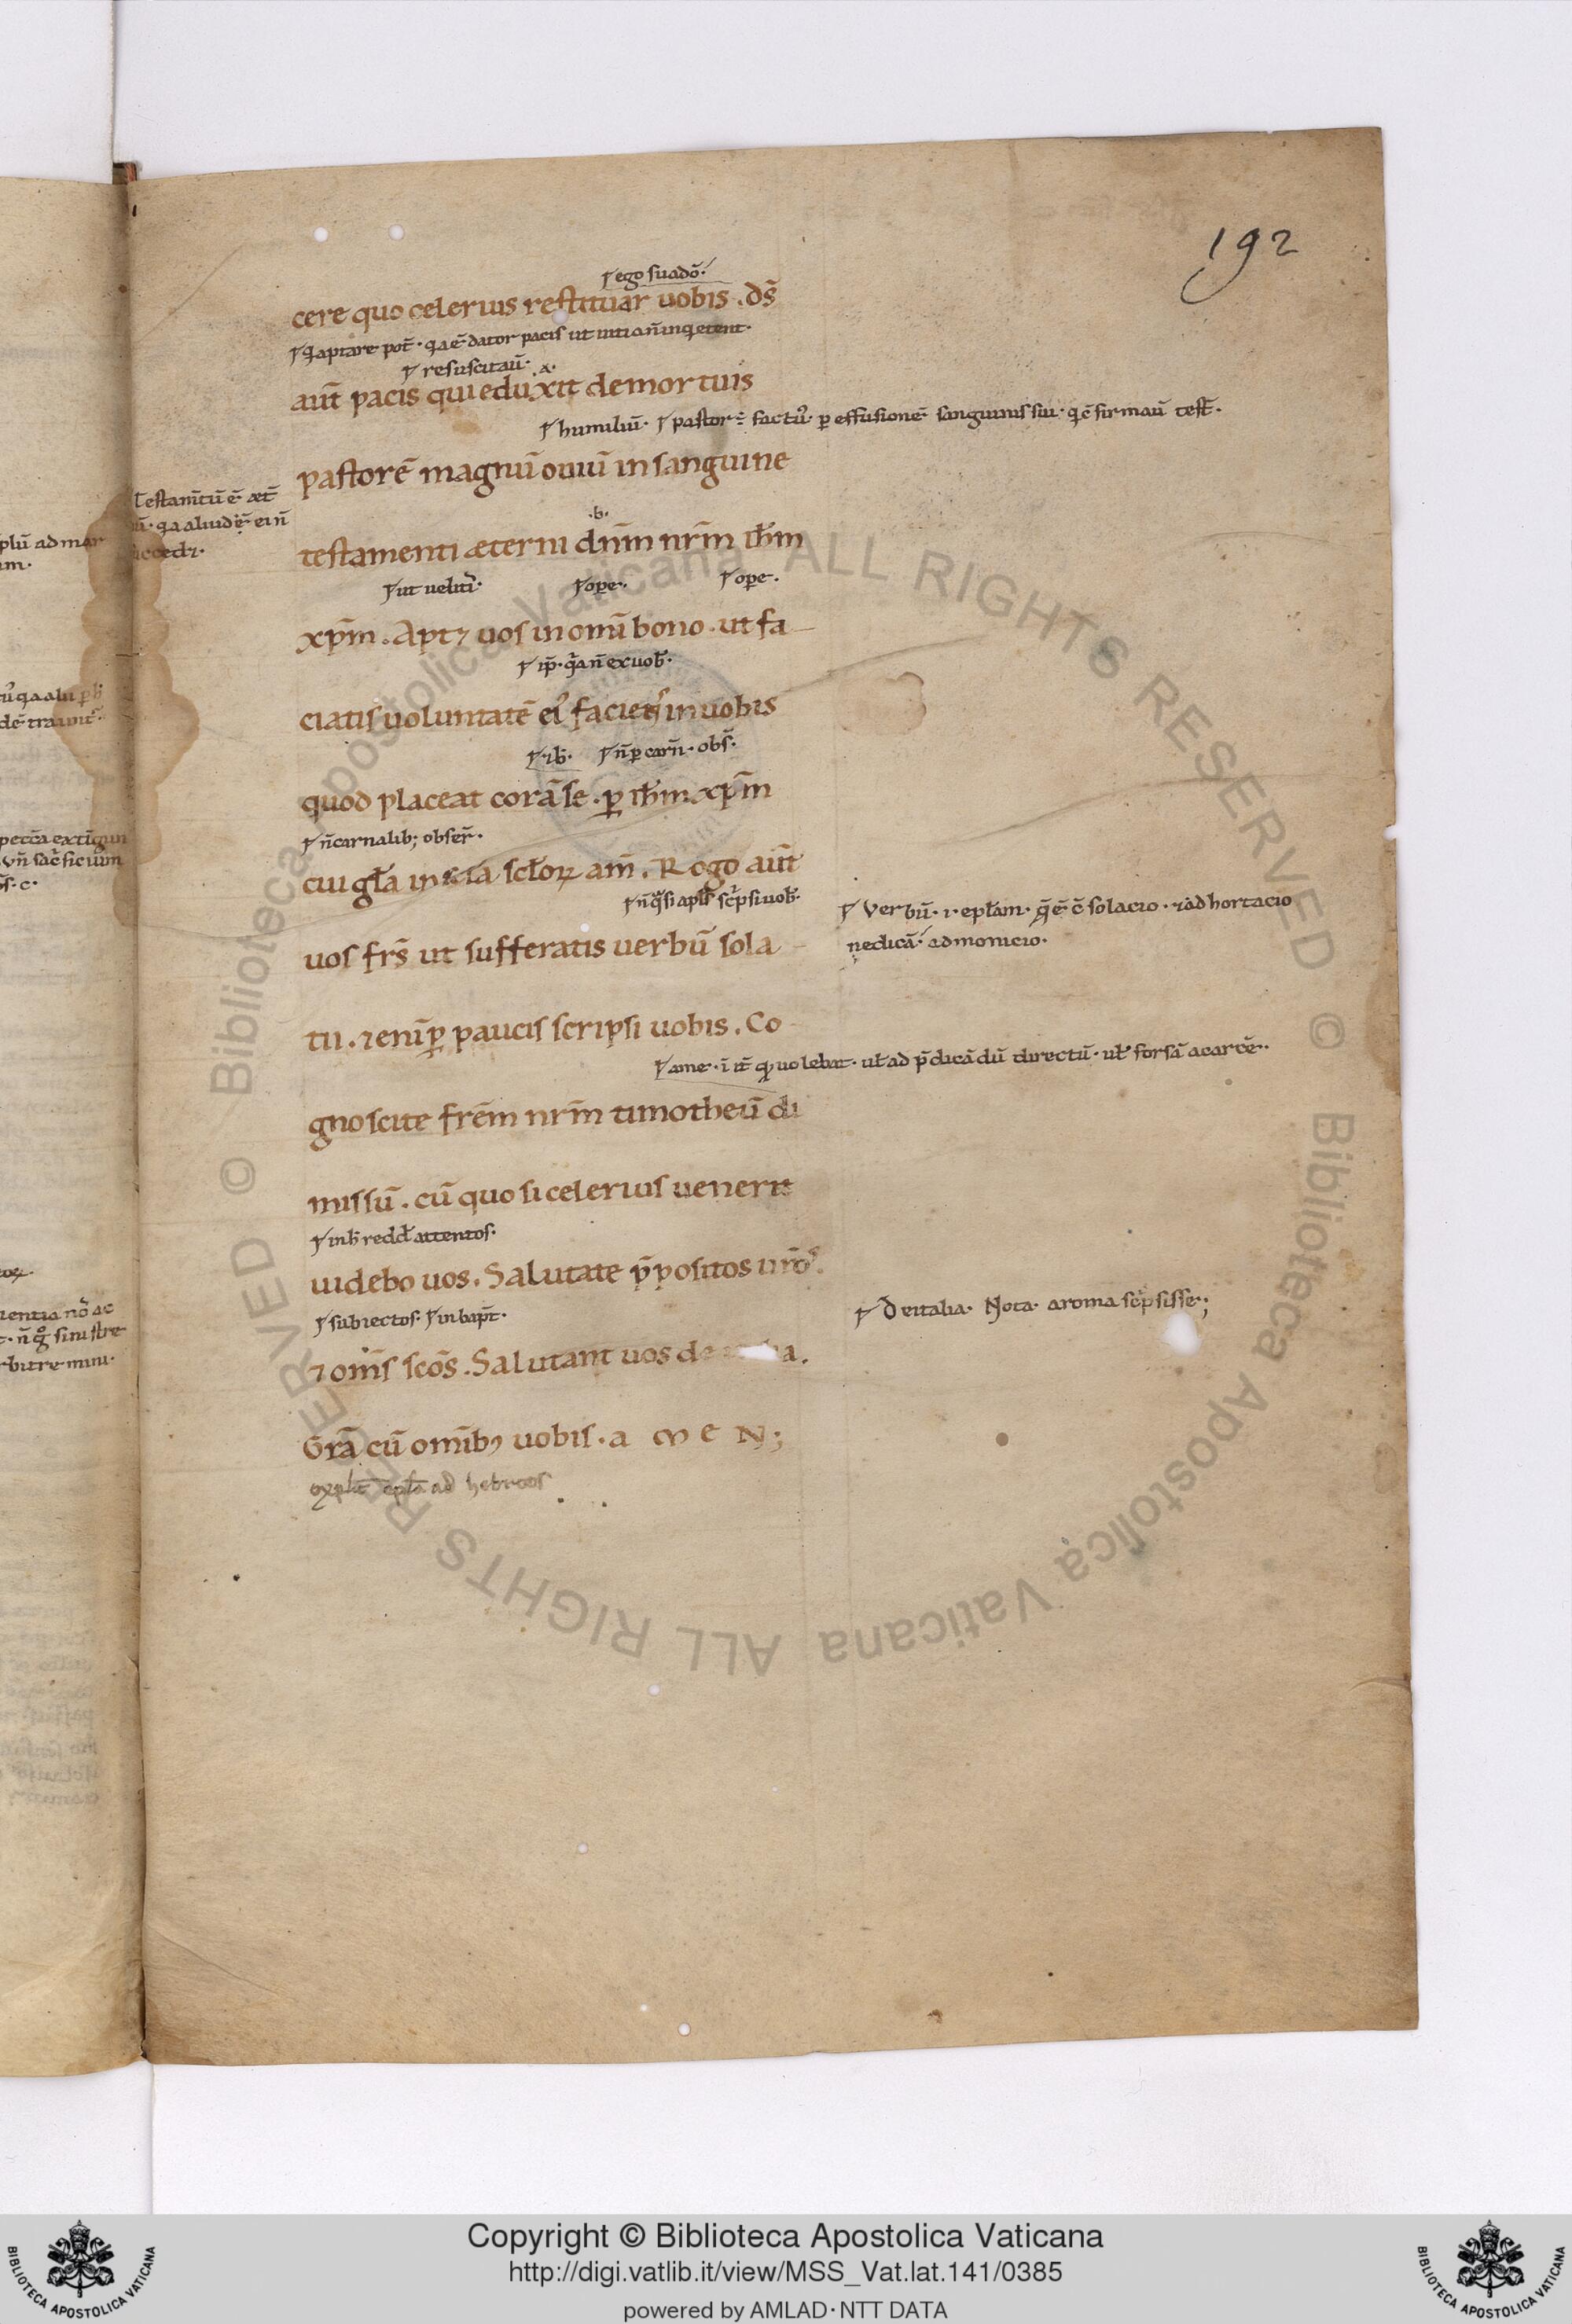 192
ego suadō.
cere quo celerius restituar uobis . ds̄
q aptare pot̄ · q̄a ē dator pacis ut uitia n̄ inq̄etent ·
resuscitau̅ · .a.
aut̄ pacis qui eduxit de mortuis
humiliū · pastor factꝰ · ꝑ effusionē sanguinis sui · q̄ cfirmau̅ test̄ ·
pastorē magnū ouiū in sanguine
Testam̄tū ē æt̄
qa aliud ē ei n̄
.b.
testamenti æterni dn̄m nr̄m ih̄m
ut uelitꝭ · ope · ope ·
xp̄m . Apt⁊ uos in om̄i bono . ut fa
ip̄ · q̄a n̄ ex uob̄ ·
ciatis uoluntatē eiꝰ faciens in uobis
n̄ ꝑ carn̄ · obs̄ ·
quod placeat corā se . ꝑ ih̄m xp̄m
n̄ carnalib; obser̄ ·
cui gł̄a in sc̄la scł̄oꝝ am̄ . Rogo aut̄
n̄ q̄si apl̄s sc̄psi uob̄ ·
Verbū · i · epl̄am · q̄ ē c̄solacio · ⁊ adhortacio
uos fr̄s ut sufferatis uerbū sola
ne dicā · admonicio ·
tii . ⁊enī ꝑ paucis scripsi uobis . Co
a me · uł ad p̄dicādū directū · uł forsā a carcē ·
gnoscite fr̄em nr̄m timotheū di
missū . cū quo si celerius uenerit
redd attentos ·
uidebo uos . Salutate p̄positos ur̄os .
subiectos · in bapt̄ ·
De italia · Nota · a roma sc̄psisse ;
⁊ om̄s sc̄os . Salutant uos de
Gr̄a cū om̄ibꝰ uobis . a M E N ;
explīc epl̄a ad hebreos
Copyright © Biblioteca Apostolica Vaticana
http://digi.vatlib.it/view/MSS_Vat.lat.141/0385
powered by AMLAD · NTT DATA
BIBLIOTECA APOSTOLICA VATICANA
BIBLIOTECA APOSTOLICA VATICANA
© Biblioteca Apostolica Vaticana ALL RIGHTS RESERVED © Biblioteca Apostolica Vaticana ALL RIGHTS RESERVED